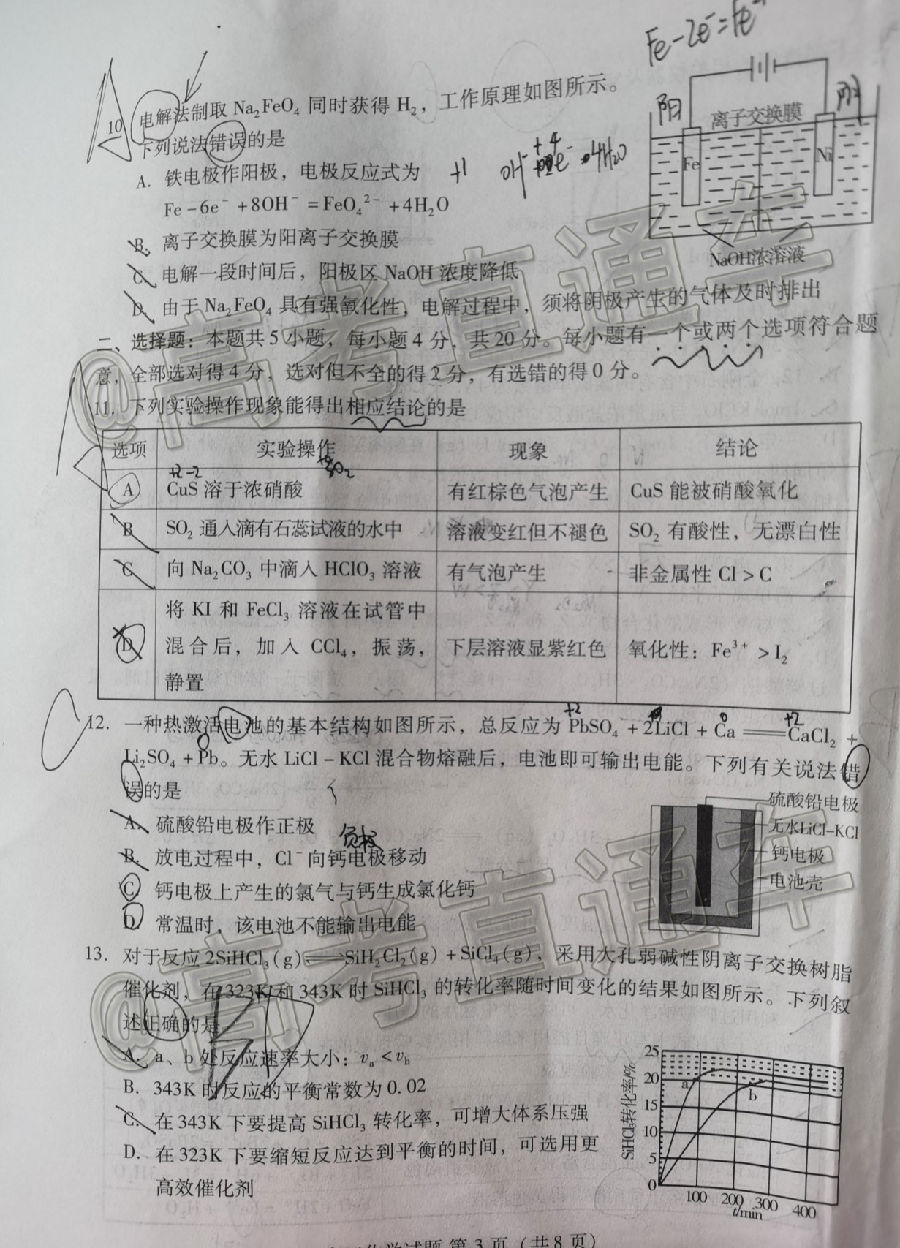 Fe-2e⁻=Fe²⁺
10. 电解法制取 Na₂FeO₄ 同时获得 H₂，工作原理如图所示。
下列说法错误的是
A. 铁电极作阳极，电极反应式为
Fe－6e⁻＋8OH⁻＝FeO₄²⁻＋4H₂O
B. 离子交换膜为阳离子交换膜
C. 电解一段时间后，阳极区 NaOH 浓度降低
D. 由于 Na₂FeO₄ 具有强氧化性，电解过程中，须将阴极产生的气体及时排出
阳
离子交换膜
Fe
Ni
NaOH浓溶液
二、选择题：本题共 5 小题，每小题 4 分，共 20 分。每小题有一个或两个选项符合题
意，全部选对得 4 分，选对但不全的得 2 分，有选错的得 0 分。
11. 下列实验操作现象能得出相应结论的是
选项 实验操作 现象 结论
A CuS 溶于浓硝酸 有红棕色气泡产生 CuS 能被硝酸氧化
+2-2
B SO₂ 通入滴有石蕊试液的水中 溶液变红但不褪色 SO₂ 有酸性，无漂白性
C 向 Na₂CO₃ 中滴入 HClO₃ 溶液 有气泡产生 非金属性 Cl＞C
D 将 KI 和 FeCl₃ 溶液在试管中
混合后，加入 CCl₄，振荡， 下层溶液显紫红色 氧化性：Fe³⁺＞I₂
静置
12. 一种热激活电池的基本结构如图所示，总反应为 PbSO₄＋2LiCl＋Ca══CaCl₂＋
+2 0 +2
Li₂SO₄＋Pb。无水 LiCl－KCl 混合物熔融后，电池即可输出电能。下列有关说法错
0
误的是
A. 硫酸铅电极作正极
负极
B. 放电过程中，Cl⁻ 向钙电极移动
C. 钙电极上产生的氯气与钙生成氯化钙
D. 常温时，该电池不能输出电能
硫酸铅电极
无水LiCl-KCl
钙电极
电池壳
13. 对于反应 2SiHCl₃(g)⇌SiH₂Cl₂(g)＋SiCl₄(g)，采用大孔弱碱性阴离子交换树脂
催化剂，在 323K 和 343K 时 SiHCl₃ 的转化率随时间变化的结果如图所示。下列叙
述正确的是
A. a、b 处反应速率大小：vₐ＜v_b
B. 343K 时反应的平衡常数为 0.02
C. 在 343K 下要提高 SiHCl₃ 转化率，可增大体系压强
D. 在 323K 下要缩短反应达到平衡的时间，可选用更
高效催化剂
SiHCl₃转化率/%
25
20
15
10
5
0
a
b
100 200 300 400
t/min
化学试题 第 3 页（共 8 页）
@高考直通车
@高考直通车